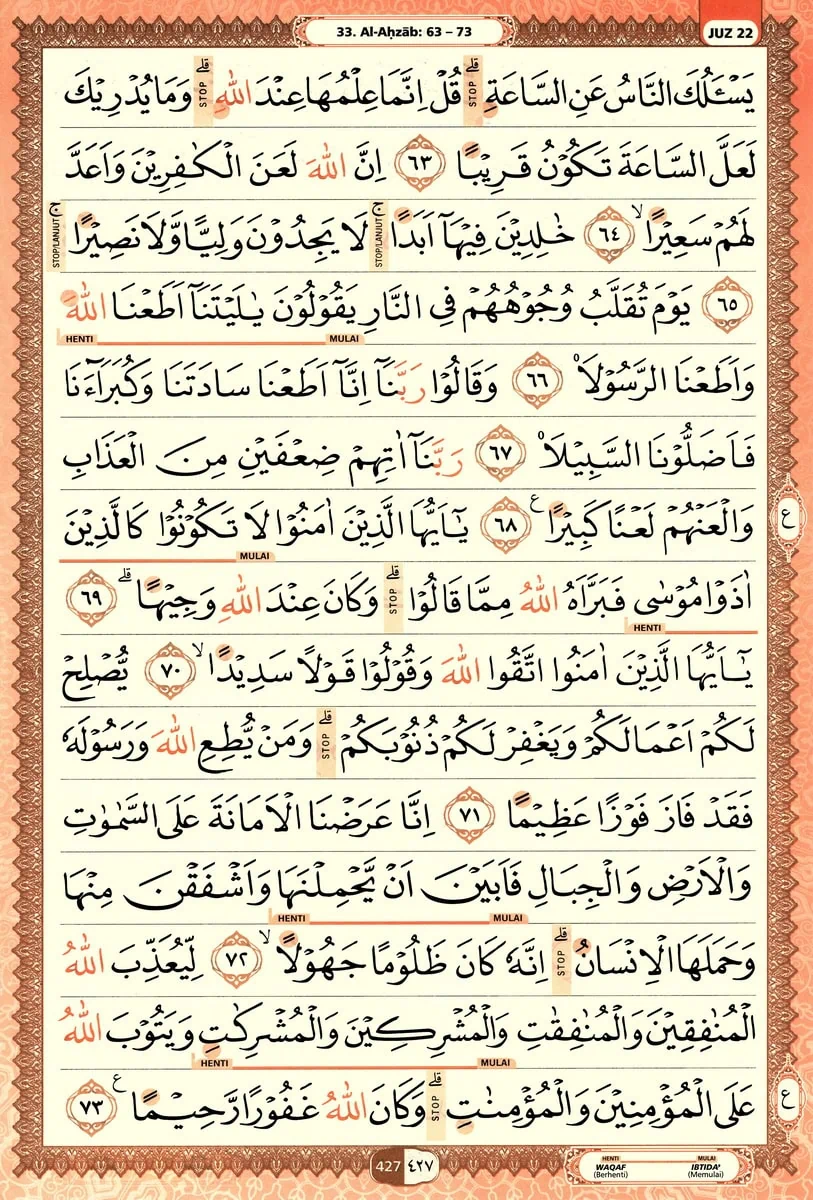 33. Al-Aḥzāb: 63 – 73
JUZ 22
يَسْـَٔلُكَ النَّاسُ عَنِ السَّاعَةِۗ STOP قُلْ اِنَّمَا عِلْمُهَا عِنْدَ اللّٰهِۗ STOP وَمَا يُدْرِيْكَ
لَعَلَّ السَّاعَةَ تَكُوْنُ قَرِيْبًا ٦٣ اِنَّ اللّٰهَ لَعَنَ الْكٰفِرِيْنَ وَاَعَدَّ
لَهُمْ سَعِيْرًاۙ ٦٤ خٰلِدِيْنَ فِيْهَآ اَبَدًاۚ STOP/LANJUT لَا يَجِدُوْنَ وَلِيًّا وَّلَا نَصِيْرًاۚ STOP/LANJUT
٦٥ يَوْمَ تُقَلَّبُ وُجُوْهُهُمْ فِى النَّارِ يَقُوْلُوْنَ يٰلَيْتَنَآ اَطَعْنَا اللّٰهَ
MULAI HENTI
وَاَطَعْنَا الرَّسُوْلَا۠ ٦٦ وَقَالُوْا رَبَّنَآ اِنَّآ اَطَعْنَا سَادَتَنَا وَكُبَرَاۤءَنَا
فَاَضَلُّوْنَا السَّبِيْلَا۠ ٦٧ رَبَّنَآ اٰتِهِمْ ضِعْفَيْنِ مِنَ الْعَذَابِ
وَالْعَنْهُمْ لَعْنًا كَبِيْرًا ࣖ ٦٨ يٰٓاَيُّهَا الَّذِيْنَ اٰمَنُوْا لَا تَكُوْنُوْا كَالَّذِيْنَ
ع
MULAI
اٰذَوْا مُوْسٰى فَبَرَّاَهُ اللّٰهُ مِمَّا قَالُوْاۗ STOP وَكَانَ عِنْدَ اللّٰهِ وَجِيْهًاۗ ٦٩
HENTI
يٰٓاَيُّهَا الَّذِيْنَ اٰمَنُوا اتَّقُوا اللّٰهَ وَقُوْلُوْا قَوْلًا سَدِيْدًاۙ ٧٠ يُّصْلِحْ
لَكُمْ اَعْمَالَكُمْ وَيَغْفِرْ لَكُمْ ذُنُوْبَكُمْۗ STOP وَمَنْ يُّطِعِ اللّٰهَ وَرَسُوْلَهٗ
فَقَدْ فَازَ فَوْزًا عَظِيْمًا ٧١ اِنَّا عَرَضْنَا الْاَمَانَةَ عَلَى السَّمٰوٰتِ
وَالْاَرْضِ وَالْجِبَالِ فَاَبَيْنَ اَنْ يَّحْمِلْنَهَا وَاَشْفَقْنَ مِنْهَا
MULAI HENTI
وَحَمَلَهَا الْاِنْسَانُۗ STOP اِنَّهٗ كَانَ ظَلُوْمًا جَهُوْلًاۙ ٧٢ لِّيُعَذِّبَ اللّٰهُ
الْمُنٰفِقِيْنَ وَالْمُنٰفِقٰتِ وَالْمُشْرِكِيْنَ وَالْمُشْرِكٰتِ وَيَتُوْبَ اللّٰهُ
MULAI HENTI
عَلَى الْمُؤْمِنِيْنَ وَالْمُؤْمِنٰتِۗ STOP وَكَانَ اللّٰهُ غَفُوْرًا رَّحِيْمًا ࣖ ٧٣
ع
427 ٤٢٧
HENTI MULAI
WAQAF IBTIDA'
(Berhenti) (Memulai)